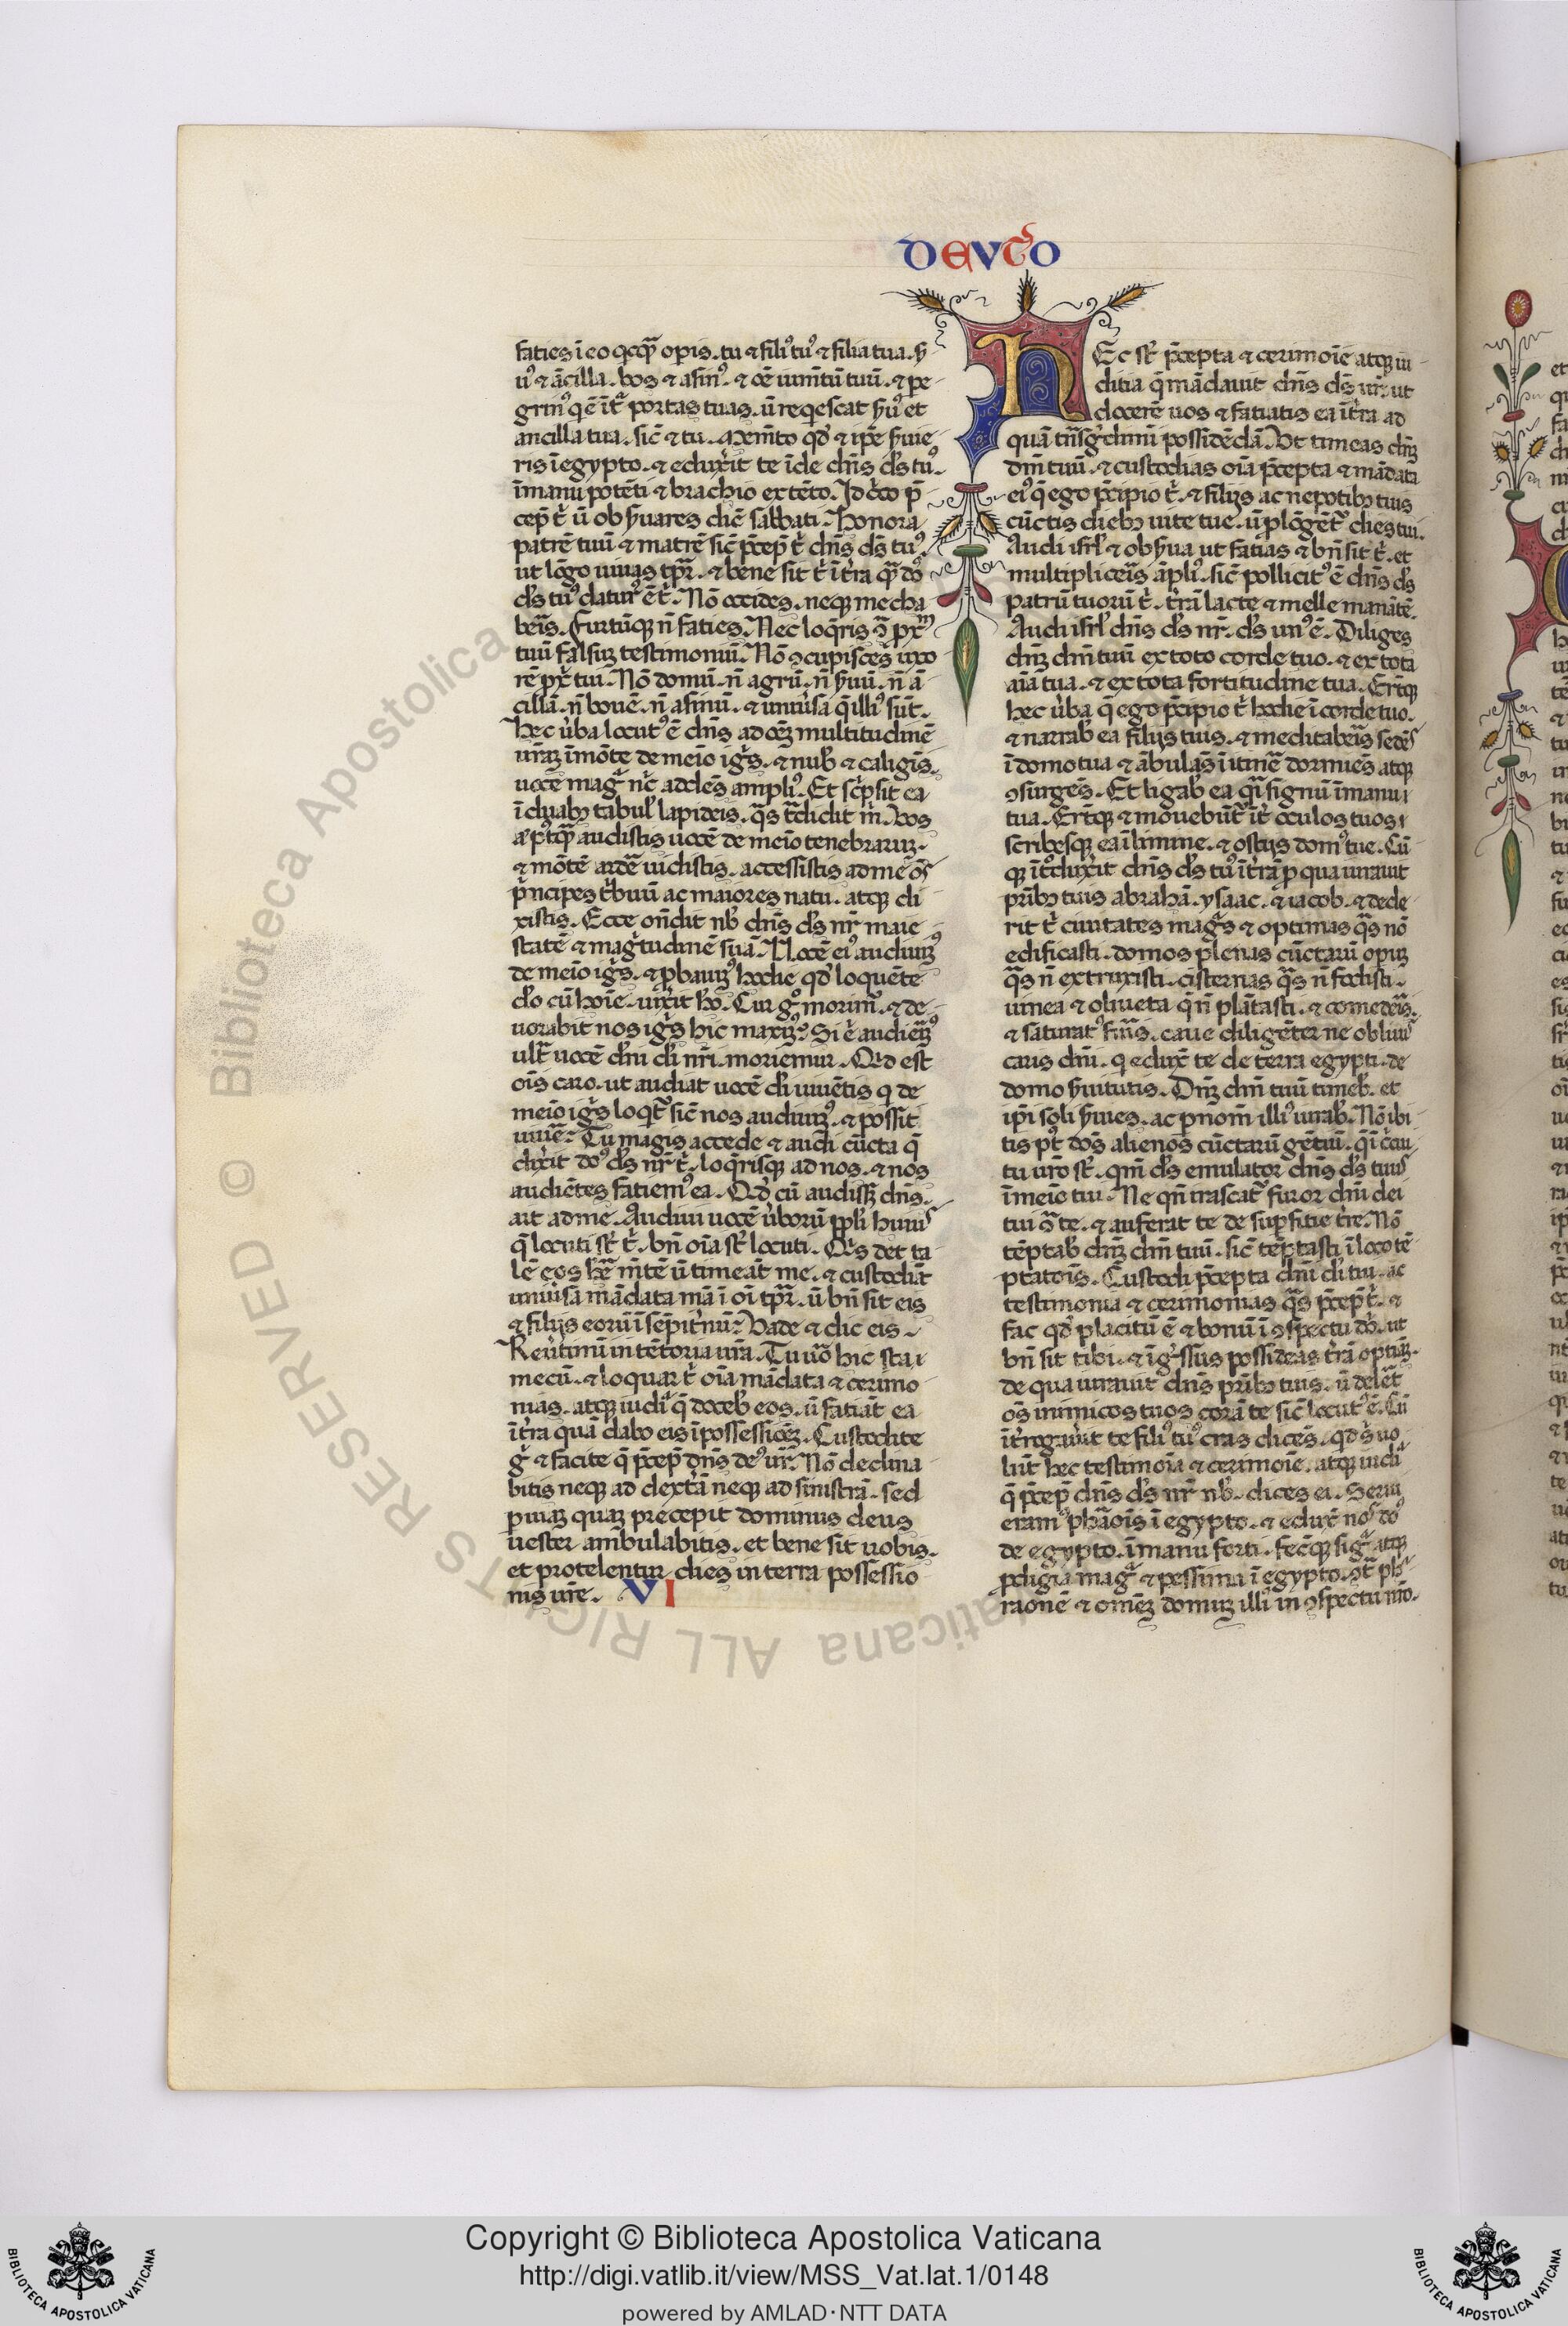 DEVTO
faties ī eo qcq̄ opis. tu ⁊ filiꝰ tuꝰ ⁊ filia tua. ẜ
uꝰ ⁊ ācilla. bos ⁊ asinꝰ. ⁊ oē iumētū tuū. ⁊ pe
grinꝰ q̄ ē īt portas tuas. ū reqescat ẜuꝰ et
ancilla tua. sic̄ ⁊ tu. Memēto qd̄ ⁊ ip̄e ẜuie
ris ī egypto. ⁊ eduxit te īde dn̄s ds̄ tuꝰ.
ī manu potēti ⁊ brachio extēto. Idc̄co p̄
cep̄ t̄ ū obẜuares diē sabbati. Honora
patrē tuū ⁊ matrē sic̄ p̄cep̄ t̄ dn̄s ds̄ tuꝰ.
ut lōgo uiuas tp̄r. ⁊ bene sit t̄ ī t̄ra q̄ dn̄s
ds̄ tuꝰ daturꝰ ē t̄. Nō occides. neqꝫ mecha
beris. Furtūqꝫ n̄ faties. Nec loq̄ris ꝯ̄ pxm̄
tuū falsuꝫ testimoniū. Nō ꝯcupisces uxo
rē px̄ tui. Nō domū. n̄ agrū. n̄ ẜuū. n̄ ā
cillā. n̄ bouē. n̄ asinū. ⁊ uniuersa q̄ illiꝰ sūt.
Hec ūba locutꝰ ē dn̄s ad oēꝫ multitudinē
ur̄aꝫ ī mōte de meīo igs̄. ⁊ nub̄ ⁊ caligīs.
uoce magᵃ nc̄ addēs ampliꝰ. Et sc̄psit ea
ī duabꝫ tabul̄ lapideis. q̄s tdidit m̄. Vos
at̄ pꝰtq̄ audistis uocē de meīo tenebraruꝫ.
⁊ mōtē ardē uidistis. accessistis ad me os̄
p̄ncipes tbuū ac maiores natu. atqꝫ di
xistis. Ecce on̄dit nb̄ dn̄s ds̄ nr̄ maie
statē ⁊ magtudinē suā. Uocē eiꝰ audiuīꝰ
de meīo igs̄. ⁊ ꝓbauīꝰ hodie qd̄ loquēte
do cū hoīe. uixit ho. Cur g̊ morimr̄. ⁊ de
uorabit nos igs̄ hic maximꝰ? Si ē audiem̄ꝰ
ult̄ uocē dn̄i di nr̄i. moriemur. Qd est
oīs caro. ut audiat uocē di uiuētis q̄ de
meīo igs̄ loqr̄ sic̄ nos audiuimꝰ. ⁊ possit
uiuē? Tu magis accede ⁊ audi cūcta q̄
dixit dn̄s ds̄ nr̄ t̄. loq̄risqꝫ ad nos. ⁊ nos
audiētes fatiemꝰ ea. Qd̄ cū audisset dn̄s.
ait ad me. Audiui uocē ūborū ppl̄i huiꝰ
q̄ locuti st̄ t̄. bn̄ oīa st̄ locuti. Qis det ta
lē eos hr̄e mētē ū timeāt me. ⁊ custodiāt
uniuersā mādata mā ī oī tp̄r. ū bn̄ sit eis
⁊ filijs eorū ī sēpitnū? Vade ⁊ dic eis.
Reūtimī in tētoria ur̄a. Tu uō hic sta
mecū. ⁊ loquar t̄ oīa mādata ⁊ cerimo
nias. atqꝫ iudiᵃ q̄ doceb̄ eos. ū fatiāt ea
ī t̄ra quā dabo eis ī possessiōeꝫ. Custodite
g̊ ⁊ facite q̄ p̄cep̄ dn̄s deꝰ ur̄. Nō declina
bitis neqꝫ ad dextā neqꝫ ad sinistrā. sed
p uiaꝫ quaꝫ precepit dominus deus
uester ambulabitis. et bene sit uobis.
et protelentur dies in terra possessio
nis ur̄e. VI
HEc st̄ p̄cepta ⁊ cerimoīe atqꝫ iu
ditia q̄ mādauit dn̄s ds̄ ur̄. ut
docerē uos ⁊ fatiatis ea ī t̄ra ad
quā tn̄sgdimī possidēdā. Vt timeas dn̄ꝫ
dm̄ tuū. ⁊ custodias oīa p̄cepta ⁊ mādata
eiꝰ q̄ ego p̄cipio t̄. ⁊ filijs ac nepotibꝫ tuis
cūctis diebꝫ uite tue. ū plōgēt dies tui.
Audi isrl̄ ⁊ obẜua ut fatias ⁊ bn̄ sit t̄. et
multipliceīs āpliꝰ. sic̄ pollicitꝰ ē dn̄s ds̄
patrū tuorū t̄. t̄rā lacte ⁊ melle manātē.
Audi isrl̄ dn̄s ds̄ nr̄. ds̄ unꝰ ē. Diliges
dn̄ꝫ dm̄ tuū ex toto corde tuo. ⁊ ex tota
aīa tua. ⁊ ex tota fortitudine tua. Erūtqꝫ
hec ūba q̄ ego p̄cipio t̄ hodie ī corde tuo.
⁊ narrab̄ ea filijs tuis. ⁊ meditabeīs sedēs
ī domo tua ⁊ ābulās ī itinē dormiēs atqꝫ
ꝯsurgēs. Et ligab̄ ea qī signū ī manu
tua. Erūtqꝫ ⁊ mouebūt īt oculos tuos
scribesqꝫ ea ī limine. ⁊ ostijs domꝰ tue. Cū
qꝫ ītduxit dn̄s ds̄ tuꝰ ī t̄rā p qua iurauit
pr̄ibꝫ tuis abrahā. ysaac. ⁊ iacob. ⁊ dede
rit t̄ ciuitates mags̄ ⁊ optimas q̄s nō
edificasti. domos plenas cūctarū opuꝫ
q̄s n̄ extruxisti. cisternas q̄s n̄ fodisti.
uinea ⁊ oliueta q̄ n̄ plātasti. ⁊ comedīs.
⁊ saturatꝰ fuīs. caue diligēter ne obliui
caris dn̄i. q̄ edux̄ te de terra egypti. de
domo ẜuitutis. Dn̄ꝫ dm̄ tuū timeb̄. et
ip̄i soli ẜuies. ac p nom̄ illiꝰ iurab̄. Nō ibi
tis pꝰt dos̄ alienos cūctarū gētiū. q̄ ī ccui
tu ur̄o st̄. qm̄ ds̄ emulator dn̄s ds̄ tuus
ī meīo tui. Ne qn̄ irascat furor dn̄i dei
tui ꝯ̄ te. ⁊ auferat te de supfitie t̄re. Nō
tēptab̄ dn̄ꝫ dm̄ tuū. sic̄ tēptasti ī loco tē
ptatōis. Custodi p̄cepta dn̄i di tui. ac
testimonia ⁊ cerimonias q̄s p̄cep̄ t̄. ⁊
fac qd̄ placitū ē ⁊ bonū ī ꝯspectu dn̄i. ut
bn̄ sit tibi. ⁊ īgssus possideas t̄rā optiaꝫ.
de qua iurauit dn̄s pr̄ibꝫ tuis. ū delet̄
os̄ inimicos tuos corā te sic̄ locutꝰ ē. Cū
īt̄rogauit te filiꝰ tuꝰ cras dicēs. qd̄ s̄ uo
lūt hec testimoīa ⁊ cerimoīe. atqꝫ iudiᵃ
q̄ p̄cep̄ dn̄s ds̄ nr̄ nb̄. dices ei. Serui
eramꝰ phāoīs ī egypto. ⁊ edux̄ nos dn̄s
de egypto. ī manu forti. fecitqꝫ sigᵃ atqꝫ
pdigia magᵃ ⁊ pessima ī egypto. ꝯ̄ pha
raonē ⁊ omēꝫ domuꝫ illiꝰ in ꝯspectu nr̄o.
© Biblioteca Apostolica Vaticana ALL RIGHTS RESERVED
Copyright © Biblioteca Apostolica Vaticana
http://digi.vatlib.it/view/MSS_Vat.lat.1/0148
powered by AMLAD·NTT DATA
BIBLIOTECA APOSTOLICA VATICANA
BIBLIOTECA APOSTOLICA VATICANA